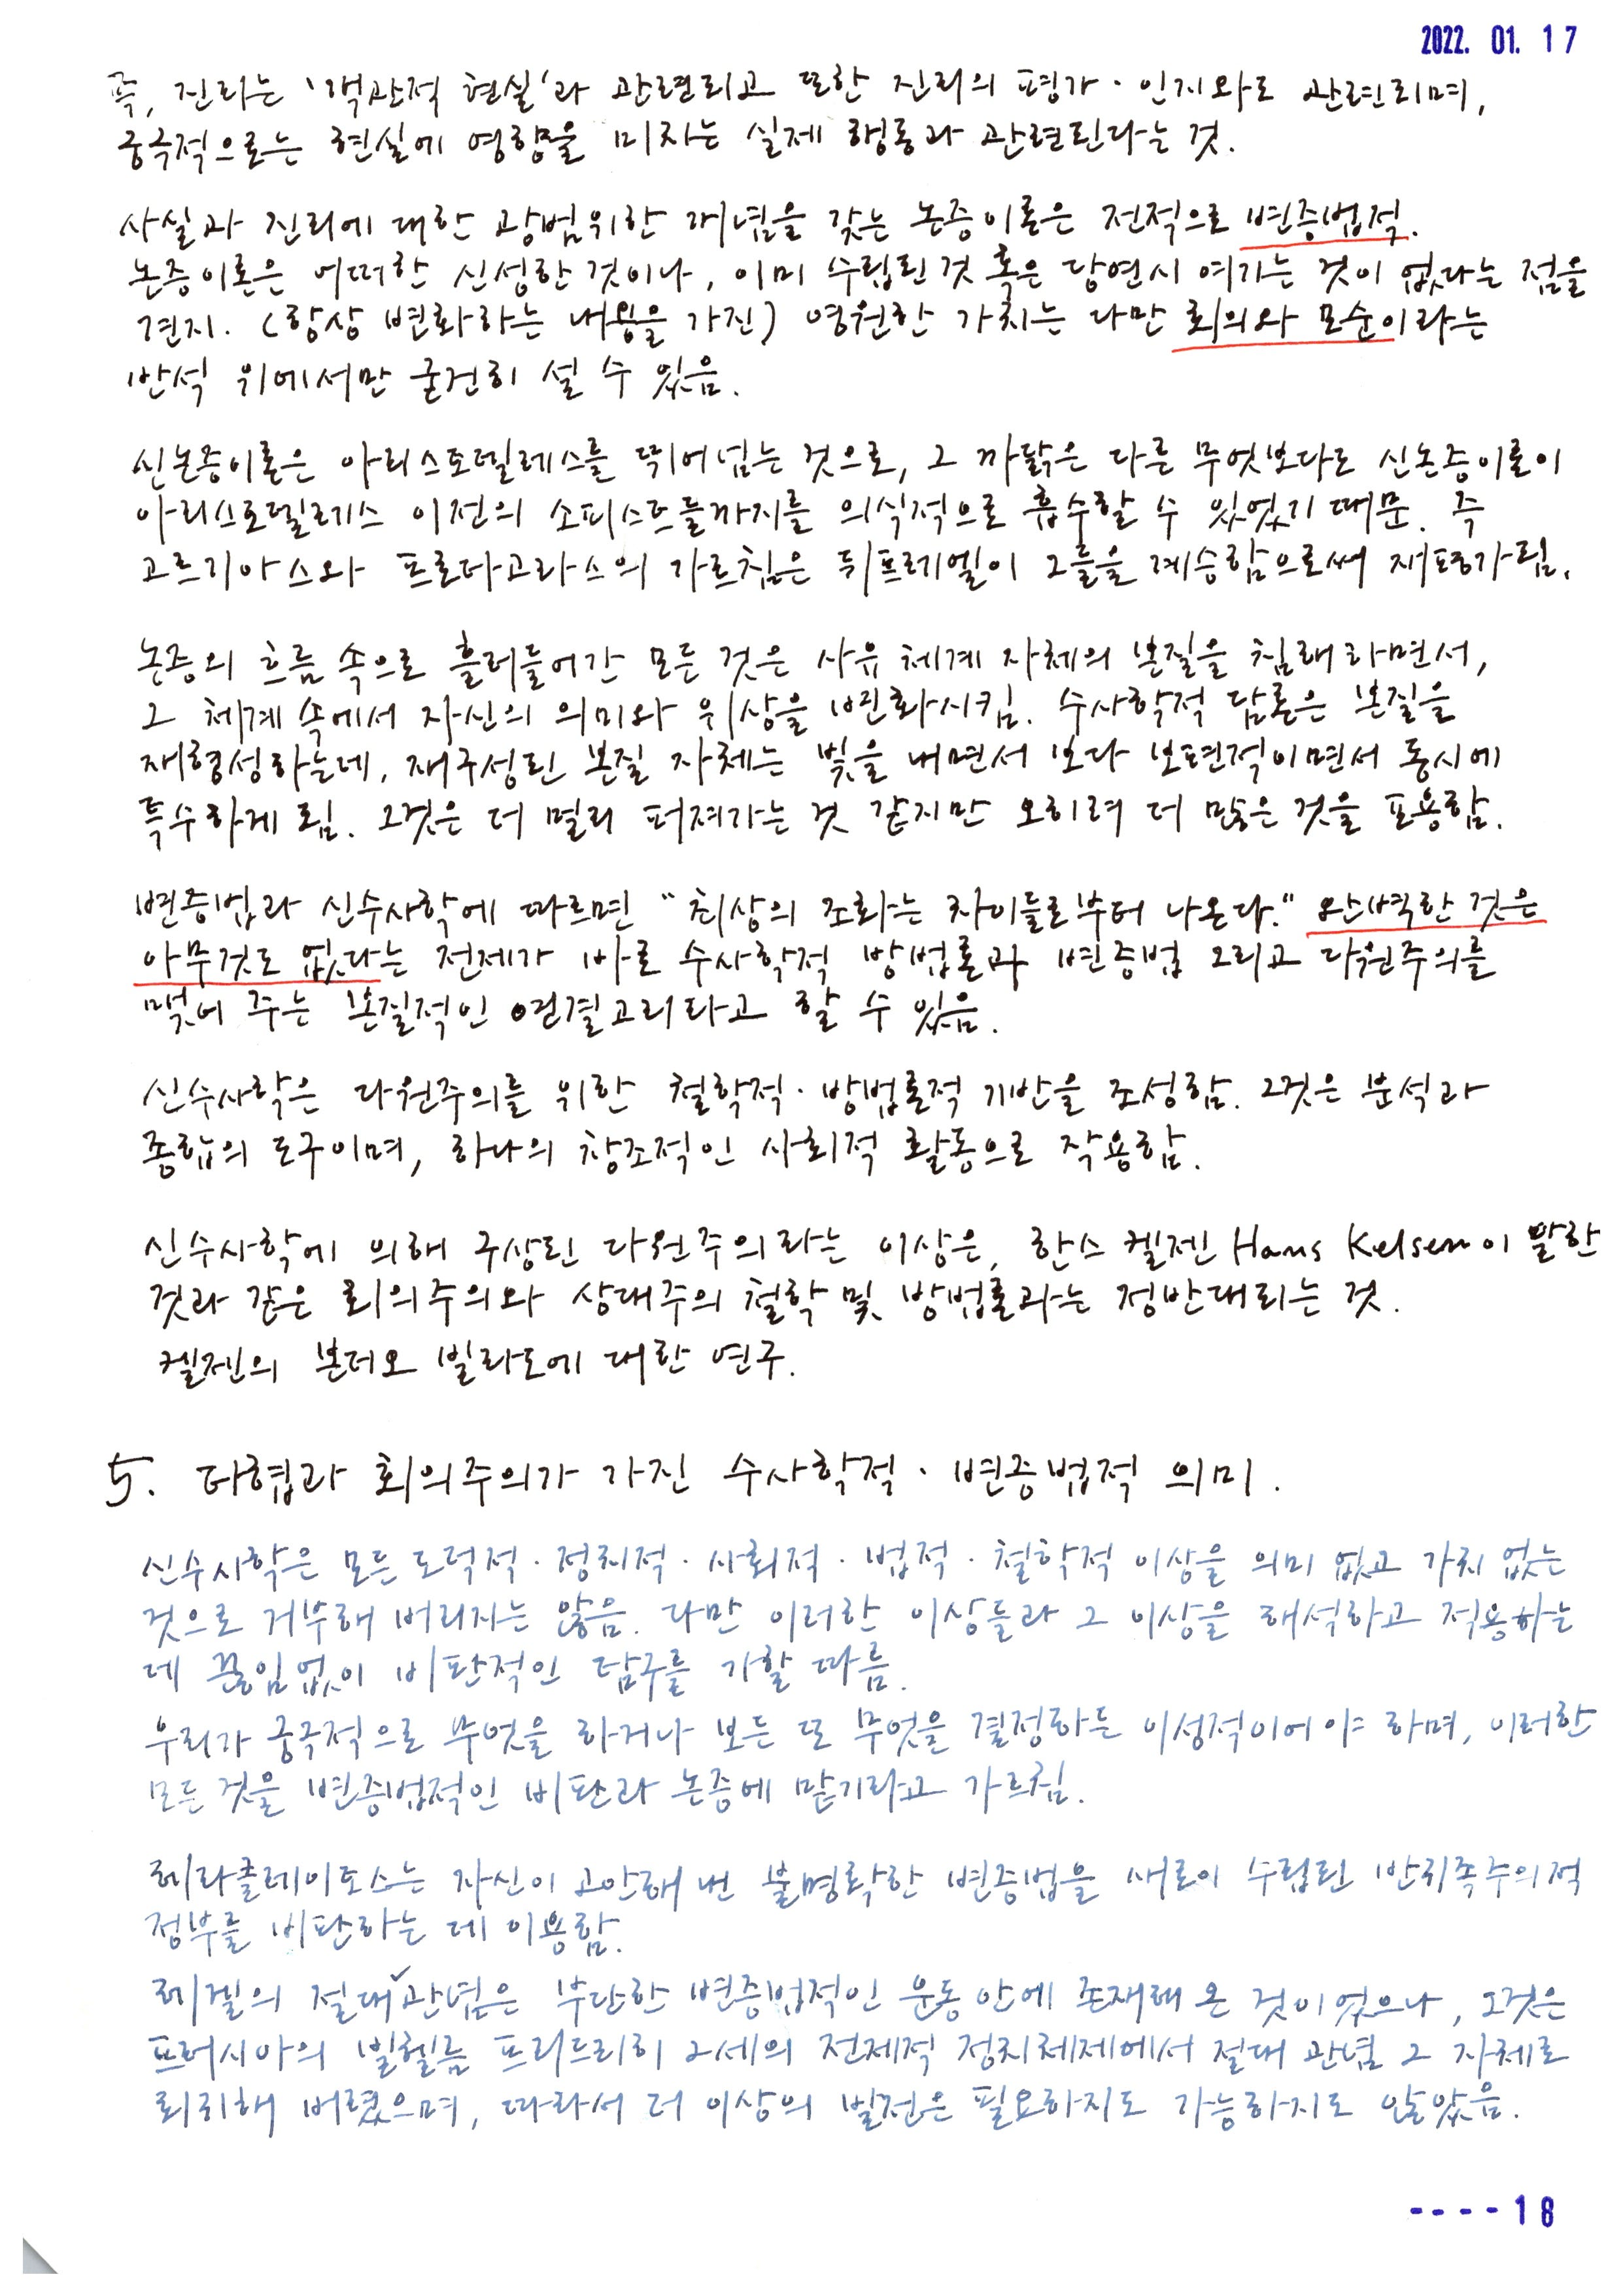 2022. 01. 17
즉, 진리는 '객관적 현실'과 관련되고 또한 진리의 평가·인지와도 관련되며,
궁극적으로는 현실에 영향을 미치는 실제 행동과 관련된다는 것.
사실과 진리에 대한 광범위한 개념을 갖는 논증이론은 전적으로 변증법적.
논증이론은 어떠한 신성한 것이나, 이미 수립된 것 혹은 당연시 여기는 것이 없다는 점을
견지. (항상 변화하는 내용을 가진) 영원한 가치는 다만 회의와 모순이라는
반석 위에서만 굳건히 설 수 있음.
신논증이론은 아리스토텔레스를 뛰어넘는 것으로, 그 까닭은 다른 무엇보다도 신논증이론이
아리스토텔레스 이전의 소피스트들까지를 의식적으로 흡수할 수 있었기 때문. 즉
고르기아스와 프로타고라스의 가르침은 뒤프레엘이 그들을 계승함으로써 재평가됨.
논증의 흐름 속으로 흘러들어간 모든 것은 사유 체계 자체의 본질을 침해하면서,
그 체계 속에서 자신의 의미와 위상을 변화시킴. 수사학적 담론은 본질을
재형성하는데, 재구성된 본질 자체는 빛을 내면서 보다 보편적이면서 동시에
특수하게 됨. 그것은 더 멀리 퍼져가는 것 같지만 오히려 더 많은 것을 포용함.
변증법과 신수사학에 따르면 "최상의 조화는 차이들로부터 나온다." 완벽한 것은
아무것도 없다는 전제가 바로 수사학적 방법론과 변증법 그리고 다원주의를
맺어 주는 본질적인 연결고리라고 할 수 있음.
신수사학은 다원주의를 위한 철학적·방법론적 기반을 조성함. 그것은 분석과
종합의 도구이며, 하나의 창조적인 사회적 활동으로 작용함.
신수사학에 의해 구상된 다원주의라는 이상은, 한스 켈젠 Hans Kelsen이 말한
것과 같은 회의주의와 상대주의 철학 및 방법론과는 정반대되는 것.
켈젠의 본디오 빌라도에 대한 연구.
5. 타협과 회의주의가 가진 수사학적·변증법적 의미.
신수사학은 모든 도덕적·정치적·사회적·법적·철학적 이상을 의미 없고 가치 없는
것으로 거부해 버리지는 않음. 다만 이러한 이상들과 그 이상을 해석하고 적용하는
데 끊임없이 비판적인 탐구를 가할 따름.
우리가 궁극적으로 무엇을 하거나 보든 또 무엇을 결정하든 이성적이어야 하며, 이러한
모든 것을 변증법적인 비판과 논증에 맡기라고 가르침.
헤라클레이토스는 자신이 고안해 낸 불명확한 변증법을 새로이 수립된 반귀족주의적
정부를 비판하는 데 이용함.
헤겔의 절대 관념은 부단한 변증법적인 운동 안에 존재해 온 것이었으나, 그것은
프러시아의 빌헬름 프리드리히 2세의 전제적 정치체제에서 절대 관념 그 자체로
퇴리해 버렸으며, 따라서 더 이상의 발전은 필요하지도 가능하지도 않았음.
----18